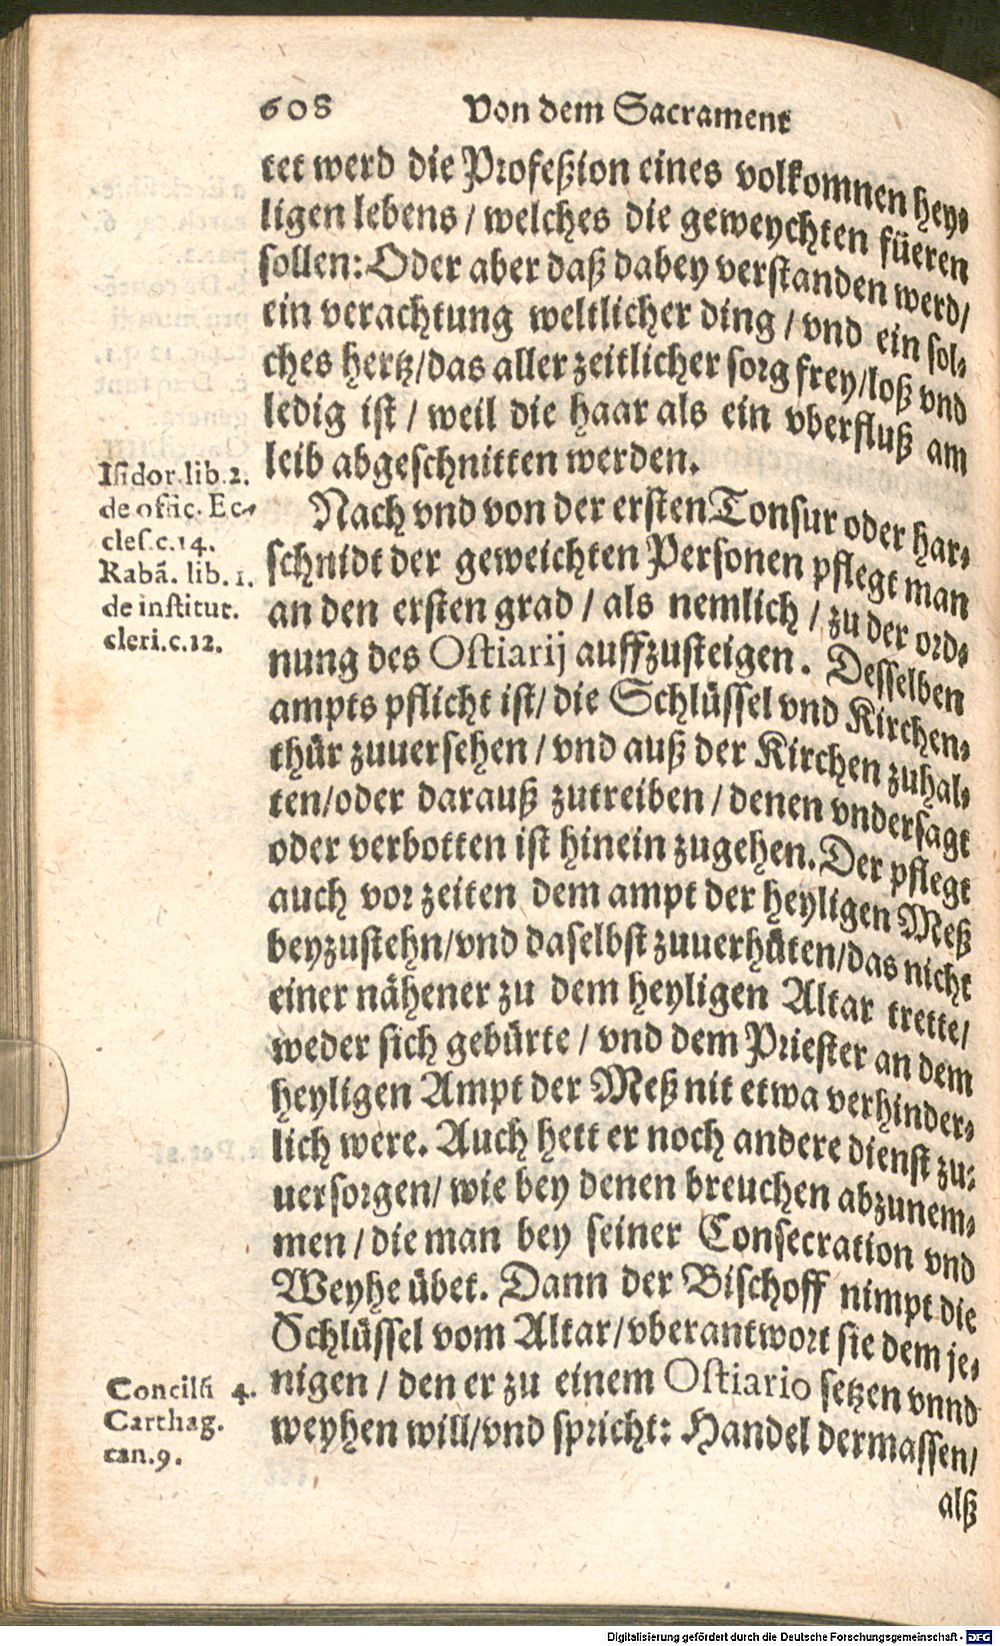 608 Von dem Sacrament
tet werd die Profeßion eines volkomnen hey-
ligen lebens / welches die geweychten füeren
sollen: Oder aber daß dabey verstanden werd/
ein verachtung weltlicher ding / vnd ein sol-
ches hertz/das aller zeitlicher sorg frey/loß vnd
ledig ist / weil die haar als ein vberfluß am
leib abgeschnitten werden.
Nach vnd von der ersten Tonsur oder har-
schnidt der geweichten Personen pflegt man
an den ersten grad / als nemlich / zu der ord-
nung des Ostiarij auffzusteigen. Desselben
ampts pflicht ist/ die Schlüssel vnd Kirchen-
thür zuuersehen / vnd auß der Kirchen zuhal-
ten/oder darauß zutreiben / denen vndersagt
oder verbotten ist hinein zugehen. Der pflegt
auch vor zeiten dem ampt der heyligen Meß
beyzustehn/vnd daselbst zuuerhüten/das nicht
einer nähener zu dem heyligen Altar trette/
weder sich gebürte / vnd dem Priester an dem
heyligen Ampt der Meß nit etwa verhinder-
lich were. Auch hett er noch andere dienst zu-
uersorgen/ wie bey denen breuchen abzunem-
men / die man bey seiner Consecration vnd
Weyhe übet. Dann der Bischoff nimpt die
Schlüssel vom Altar/vberantwort sie dem je-
nigen / den er zu einem Ostiario setzen vnnd
weyhen will/vnd spricht: Handel dermassen/
alß
Isidor. lib. 2.
de offic. Ec-
cles. c. 14.
Rabã. lib. 1.
de institut.
cleri. c. 12.
Conciliũ 4.
Carthag.
can. 9.
Digitalisierung gefördert durch die Deutsche Forschungsgemeinschaft - DFG